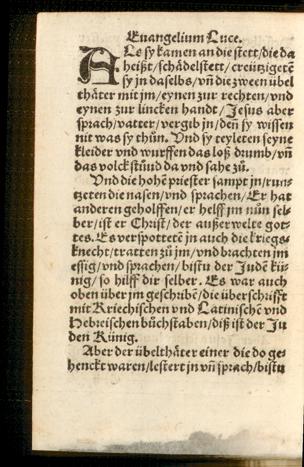 Euangelium Luce.
ALs sy kamen an die stett/die da
heißt/schädelstett/creützigetē
sy jn daselbs/vñ die zween übel
thäter mit jm/eynen zur rechten/vnd
eynen zur lincken handt/Jesus aber
sprach/vatter/vergib jn/deñ sy wissen
nit was sy thün. Vnd sy teyleten seyne
kleider vnd wurffen das loß drumb/vñ
das volck stůnd da vnd sahe zů.
Vnd die hohē priester sampt jn/run-
tzeten die nasen/vnd sprachen/Er hat
anderen geholffen/er helff jm nůn sel-
ber/ist er Christ/der außerwelte got-
tes. Es verspottetē jn auch die kriegs-
knecht/tratten zů jm/vnd brachten jm
essig/vnd sprachen/bistu der Judē kü-
nig/so hilff dir selber. Es war auch
oben über jm geschribē/die überschrifft
mit Kriechischen vnd Latinischē vnd
Hebreischen bůchstaben/diß ist der Ju
den Künig.
Aber der übelthäter einer die do ge-
henckt waren/lestert jn vñ sprach/bistu